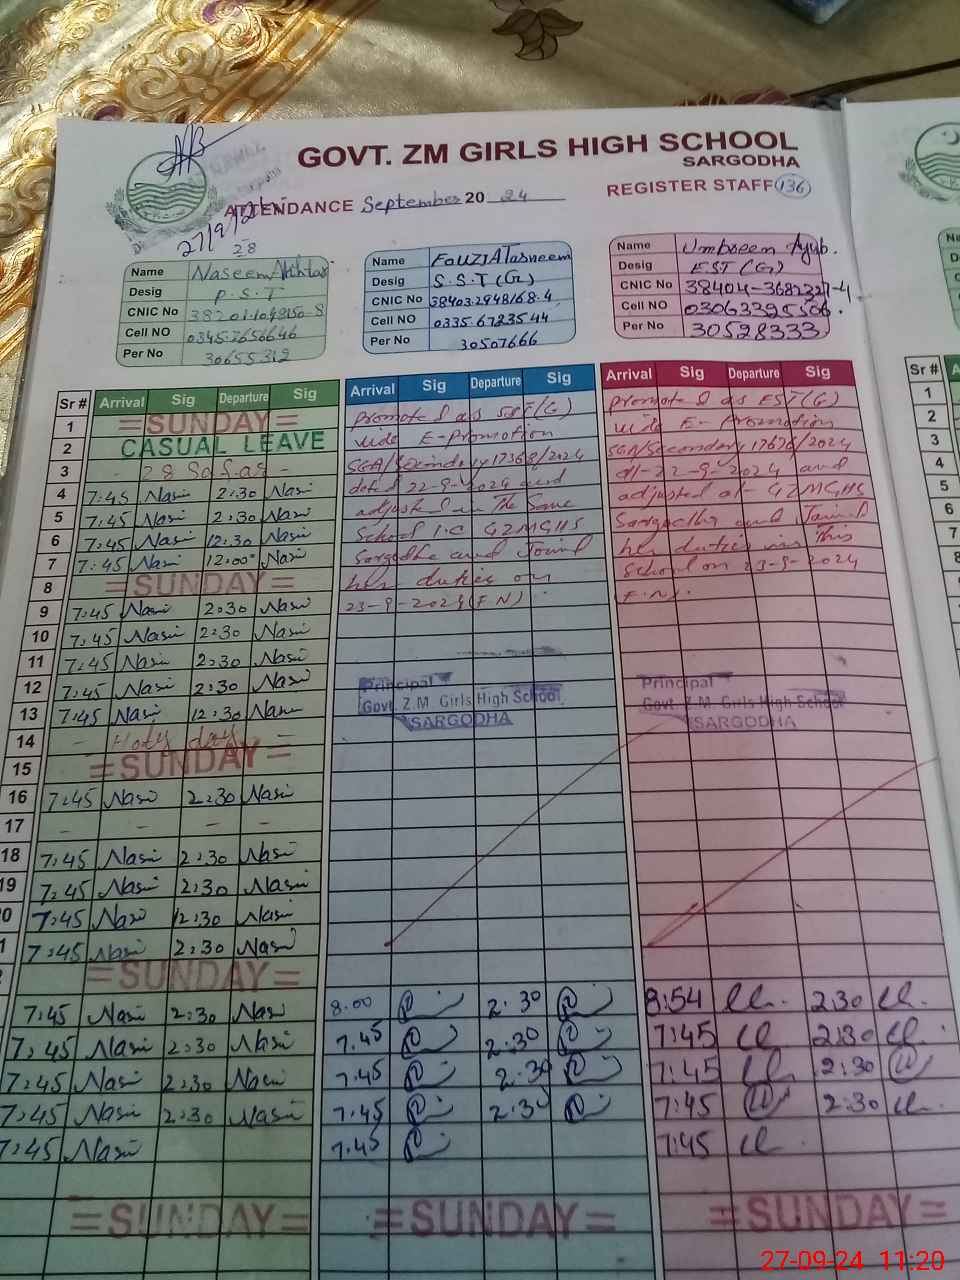 GOVT. ZM GIRLS HIGH SCHOOL
SARGODHA
ATTENDANCE September 20 24
REGISTER STAFF 136
27/9/24
28
Name Naseem Akhtar
Desig P.S.T
CNIC No
Cell NO 03457656646
Per No 30655312
Name Fouzia Tasneem
Desig S.S.T (G)
CNIC No 38403.2948168.4
Cell NO 0335.6723544
Per No 30507666
Name Umbreen Ayub.
Desig EST (G)
CNIC No 38404-3682321-4
Cell NO 03063395506.
Per No 30528333
Sr # Arrival Sig Departure Sig
1 =SUNDAY=
2 CASUAL LEAVE
3 - 28 -
4 7:45 Nasi 2:30 Nasi
5 7:45 Nasi 2:30 Nasi
6 7:45 Nasi 12:30 Nasi
7 7:45 Nasi 12:00 Nasi
8 =SUNDAY=
9 7:45 Nasi 2:30 Nasi
10 7:45 Nasi 2:30 Nasi
11 7:45 Nasi 2:30 Nasi
12 7:45 Nasi 2:30 Nasi
13 7:45 Nasi 12:30 Nasi
14 - Holy day -
15 =SUNDAY=
16 7:45 Nasi 2:30 Nasi
17 - - - -
18 7:45 Nasi 2:30 Nasi
19 7:45 Nasi 2:30 Nasi
0 7:45 Nasi 12:30 Nasi
1 7:45 Nasi 2:30 Nasi
=SUNDAY=
7:45 Nasi 2:30 Nasi
7:45 Nasi 2:30 Nasi
7:45 Nasi 2:30 Nasi
7:45 Nasi 2:30 Nasi
7:45 Nasi
=SUNDAY=
Arrival Sig Departure Sig
promoted as SST(G)
vide E-Promotion
SGA/Secondary 17368/2024
dated 22-9-2024 and
adjusted in The Same
School i.e GZMGHS
Sargodha and Joined
her duties on
23-9-2024 (F.N).
Principal
Govt. Z.M Girls High School
SARGODHA
8.00 2:30
7.45 2:30
7.45 2:30
7.45 2:30
7.45
=SUNDAY=
Arrival Sig Departure Sig
promoted as EST(G)
vide E-Promotion
SGA/Secondary 17676/2024
dt-22-9-2024 and
adjusted at- GZMGHS
Sargodha and Joined
her duties in This
school on 23-9-2024
(F.N).
Principal
Govt. Z.M Girls High School
SARGODHA
8:54 2:30
7:45 2:30
7:45 2:30
7:45 2:30
7:45
=SUNDAY=
Sr #
1
2
3
4
5
6
7
8
27-09-24 11:20